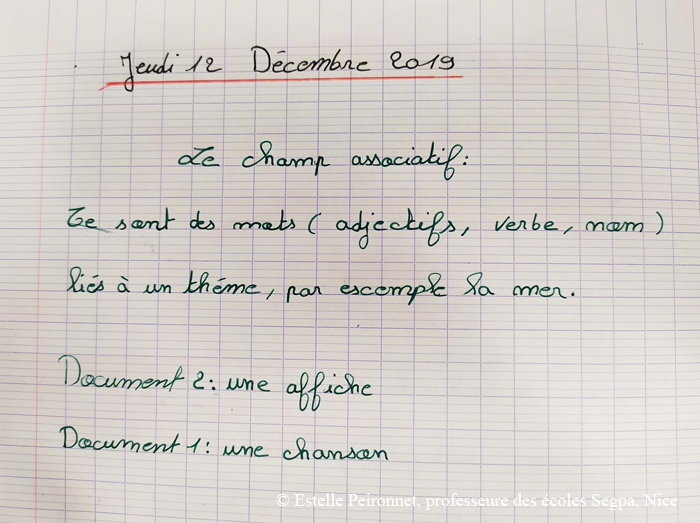 Jeudi 12 Décembre 2019
Le champ associatif:
Ce sont des mots ( adjectifs, verbe, nom )
liés à un théme, par escemple la mer.
Document 2: une affiche
Document 1: une chanson
© Estelle Peironnet, professeure des écoles Segpa, Nice